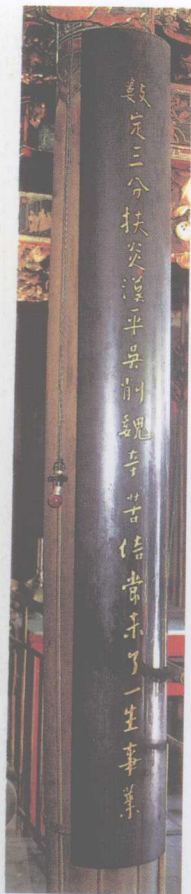 數定三分扶炎漢平吳削魏辛苦倍嘗未了一生事業